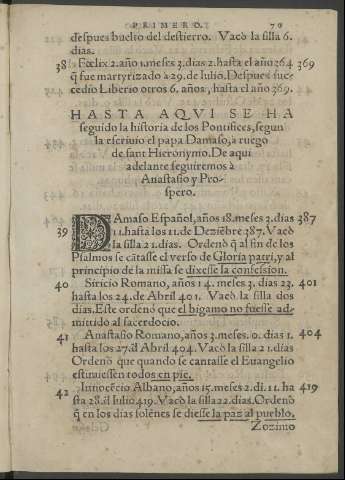 PRIMERO. 70
despues buelto del destierro. Vacò la silla 6.
dias.
38 Fœlix 2. año 1. meses 3. dias 2. hasta el año 264 369
q̃ fue martyrizado à 29. de Iulio. Despues suc=
cedio Liberio otros 6. años, hasta el año 369.
HASTA AQVI SE HA
seguido la historia de los Pontifices, segun
la escriuio el papa Damaso, a ruego
de sant Hieronymo. De aqui
adelante seguiremos à
Anastasio y Pro-
spero.
DAmaso Español, años 18. meses 3. dias 387
39 11. hasta los 11. de Deziẽbre 387. Vacò
la silla 21. dias. Ordenò q̃ al fin de los
Psalmos se cãtasse el verso de Gloria patri, y al
principio de la missa se dixesse la confession.
40 Siricio Romano, años 14. meses 3. dias 23. 401
hasta los 24. de Abril 401. Vacò la silla dos
dias. Este ordenò que el bigamo no fuesse ad-
mittido al sacerdocio.
41 Anastasio Romano, años 3. meses. 0. dias 1. 404
hasta los 27. đ Abril 404. Vacò la silla 21. dias
Ordenò que quando se cantasse el Euangelio
estuuiessen todos en pie.
42 Innocẽcio Albano, años 15. meses 2. di. 11. ha 419
sta 28. đ Iulio 419. Vacò la silla 22. dias. Ordenò
q̃ en los dias solẽnes se diesse la paz al pueblo.
Zozimo